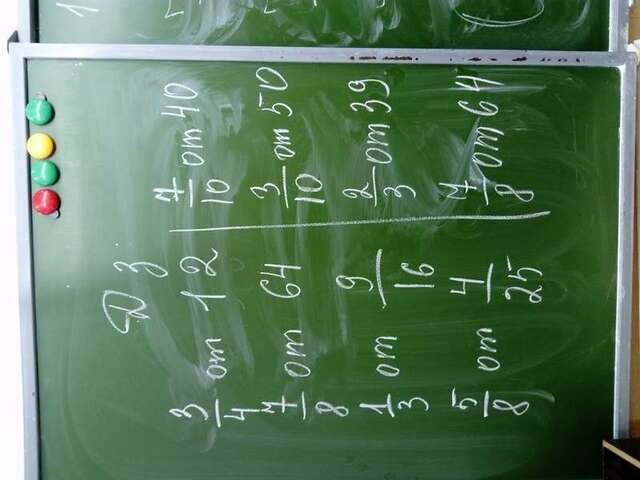 Дз.
3/4 от 12
7/8 от 64
1/3 от 9/16
5/8 от 4/25
7/10 от 40
3/10 от 50
2/3 от 39
7/8 от 64
1